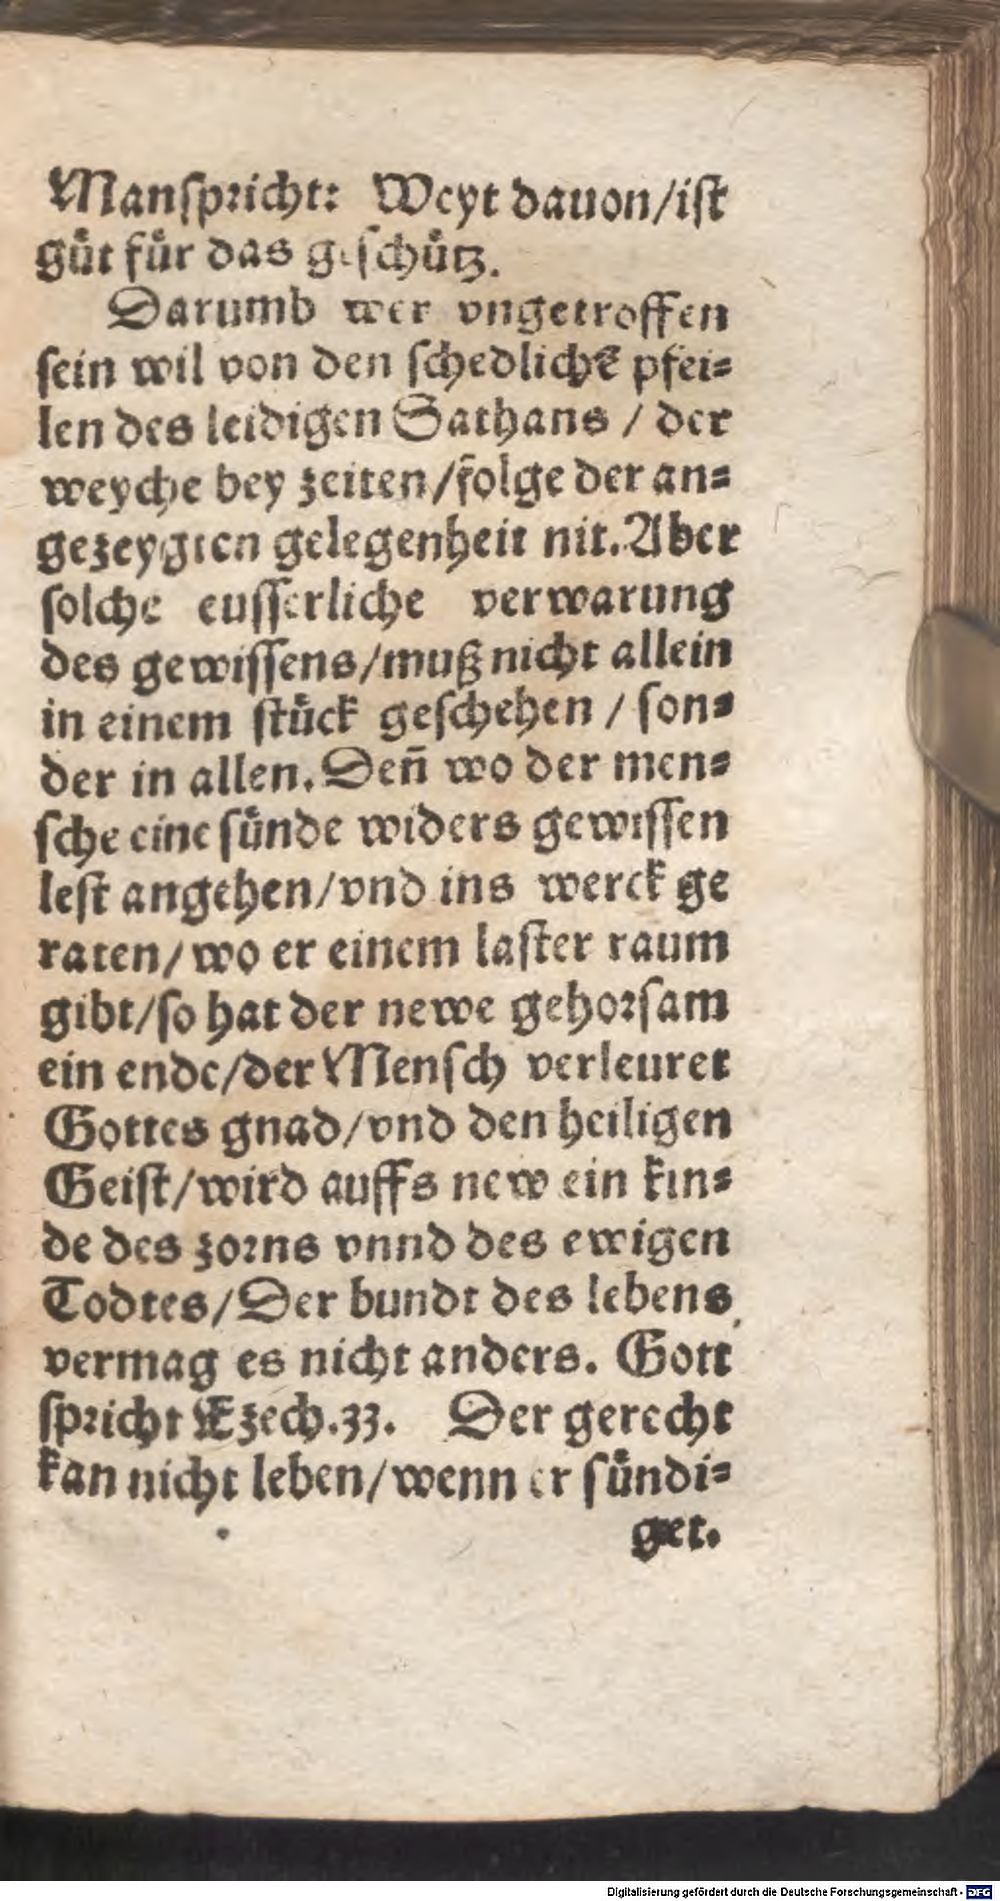 Manſpricht: Weyt dauon/iſt
guͤt fuͤr das geſchuͤtz.
Darumb wer vngetroffen
ſein wil von den ſchedlichẽ pfei⸗
len des leidigen Sathans / der
weyche bey zeiten/folge der an⸗
gezeygten gelegenheit nit. Aber
ſolche euſſerliche verwarung
des gewiſſens/muß nicht allein
in einem ſtuͤck geſchehen / ſon⸗
der in allen. Deñ wo der men⸗
ſche eine ſuͤnde widers gewiſſen
leſt angehen/vnd ins werck ge
raten/wo er einem laſter raum
gibt/ſo hat der newe gehoꝛſam
ein ende/der Menſch verleuret
Gottes gnad/vnd den heiligen
Geiſt/wird auffs new ein kin⸗
de des zoꝛns vnnd des ewigen
Todtes/Der bundt des lebens
vermag es nicht anders. Gott
ſpꝛicht Ezech.33. Der gerecht
kan nicht leben/wenn er ſuͤndi⸗
get.
Digitalisierung gefördert durch die Deutsche Forschungsgemeinschaft - DFG